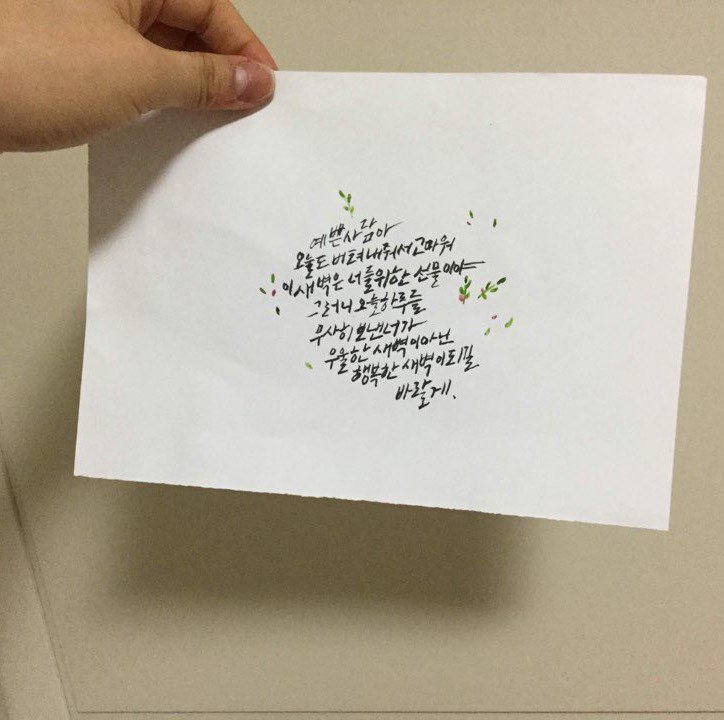 예쁜사람아
오늘도 버텨내줘서고마워
이새벽은 너를위한 선물이야
그러니 오늘하루를
무사히보낸너가
우울한 새벽이아닌
행복한 새벽이되길
바랄게.